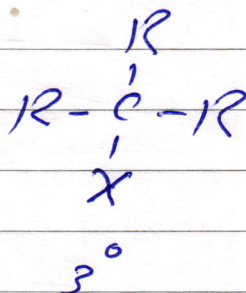 R
R - C - R
X
3°